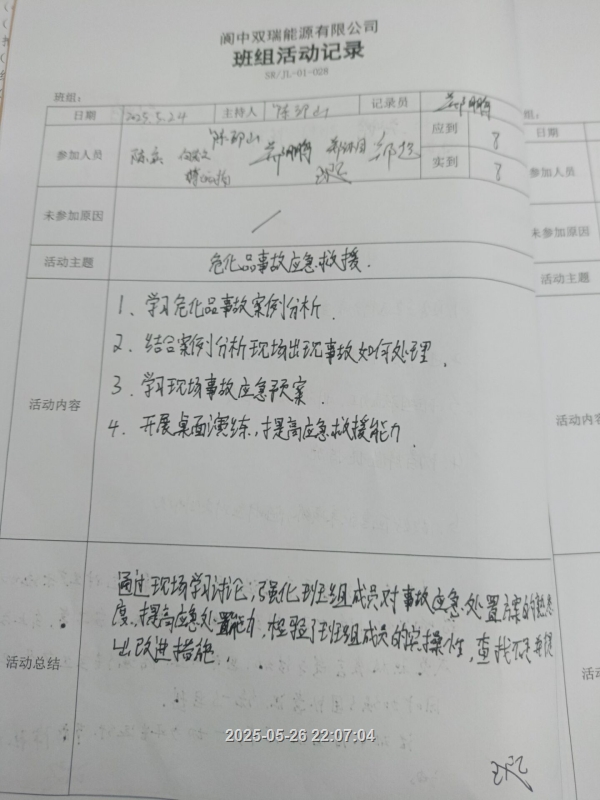 阆中双瑞能源有限公司
班组活动记录
SR/JL-01-028
班组： 组：
日期 2025.5.24 主持人 陈邵山 记录员 日期
参加人员 陈邵山 应到 8 参加人员
邹超 实到 8
未参加原因 / 未参加原因
活动主题 危化品事故应急救援. 活动主题
1、学习危化品事故案例分析.
2、结合案例分析现场出现事故如何处理.
活动内容 3、学习现场事故应急预案. 活动内容
4、开展桌面演练,提高应急救援能力.
通过现场学习讨论,强化班组成员对事故应急处置方案的熟悉
度,提高应急处置能力,检验了班组成员的实操性,查找不足并提
活动总结 出改进措施.
2025-05-26 22:07:04